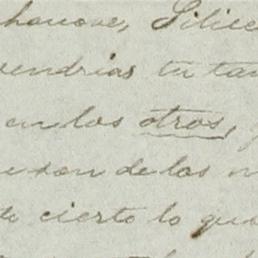 hauove, Gilie
vendrias tu tan
en los otros,
exon de las n
cierto lo que